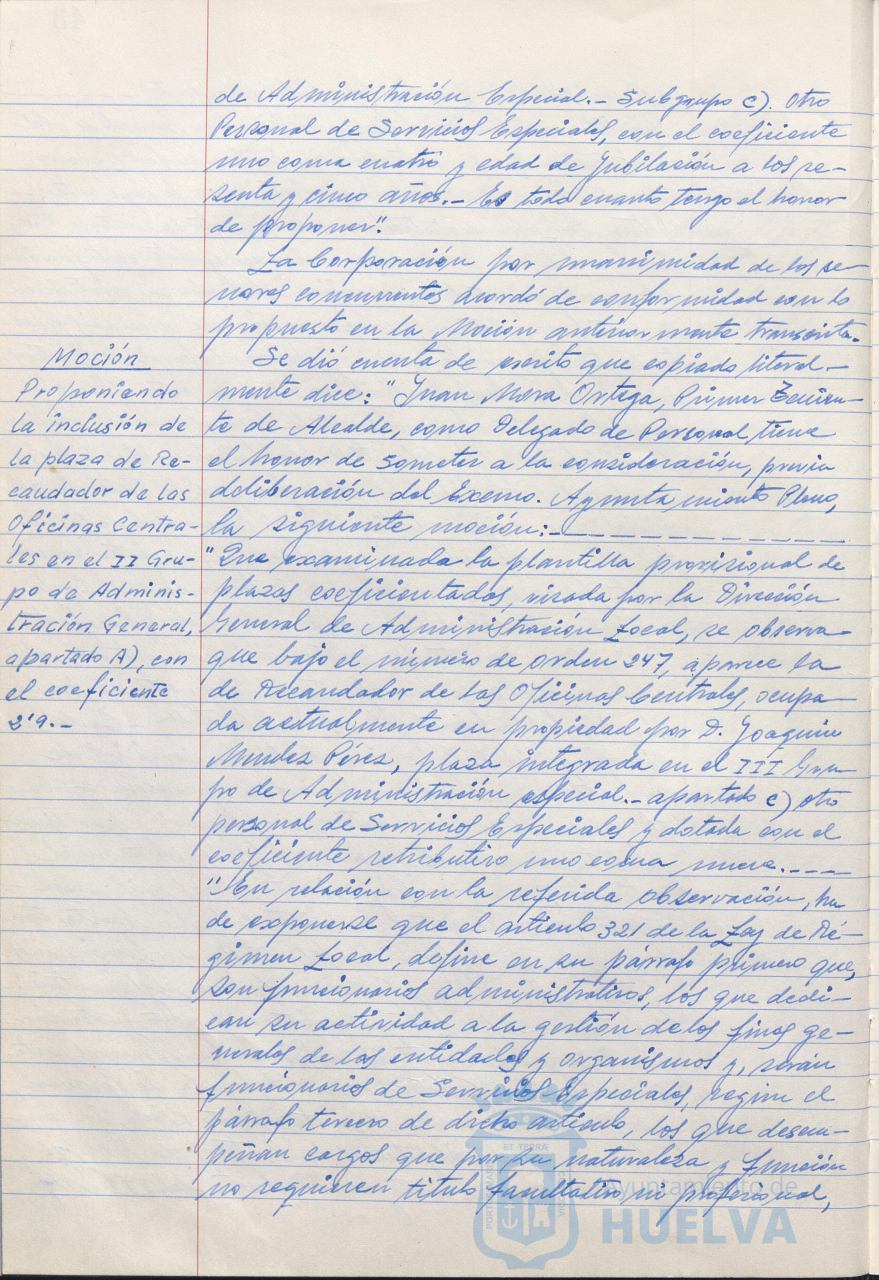 de Administración Especial.- Subgrupo c). Otro
Personal de Servicios Especiales, con el coeficiente
uno coma cuatro y edad de Jubilación a los se-
senta y cinco años.- Es todo cuanto tengo el honor
de proponer".
La Corporación por unanimidad de los se-
ñores concurrentes acordó de conformidad con lo
propuesto en la Moción anteriormente transcrita.
Moción
Proponiendo
la inclusión de
la plaza de Re-
caudador de las
Oficinas Centra-
les en el II Gru-
po de Adminis-
tración General,
apartado A), con
el coeficiente
2'9.-
Se dió cuenta de escrito que copiado literal-
mente dice: "Juan Mora Ortega, Primer Tenien-
te de Alcalde, como Delegado de Personal tiene
el honor de someter a la consideración, previa
deliberación del Excmo. Ayuntamiento Pleno,
la siguiente moción:-----------
"Que examinada la plantilla provisional de
plazas coeficientadas, visada por la Dirección
General de Administración Local, se observa
que bajo el número de orden 247, aparece la
de Recaudador de las Oficinas Centrales, ocupa-
da actualmente en propiedad por D. Joaquin
Mendez Pérez, plaza integrada en el III Gru-
po de Administración especial.- apartado c) otro
personal de Servicios Especiales y dotada con el
coeficiente retributivo uno coma nueve.----
"En relación con la referida observación, ha
de exponerse que el articulo 321 de la Ley de Ré-
gimen Local, define en su párrafo primero que,
son funcionarios administrativos, los que dedi-
can su actividad a la gestión de los fines ge-
nerales de las entidades y organismos y, serán
funcionarios de Servicios Especiales, según el
párrafo tercero de dicho articulo, los que desem-
peñan cargos que por su naturaleza y función
no requieren titulo facultativo ni profesional,
Ayuntamiento de
HUELVA